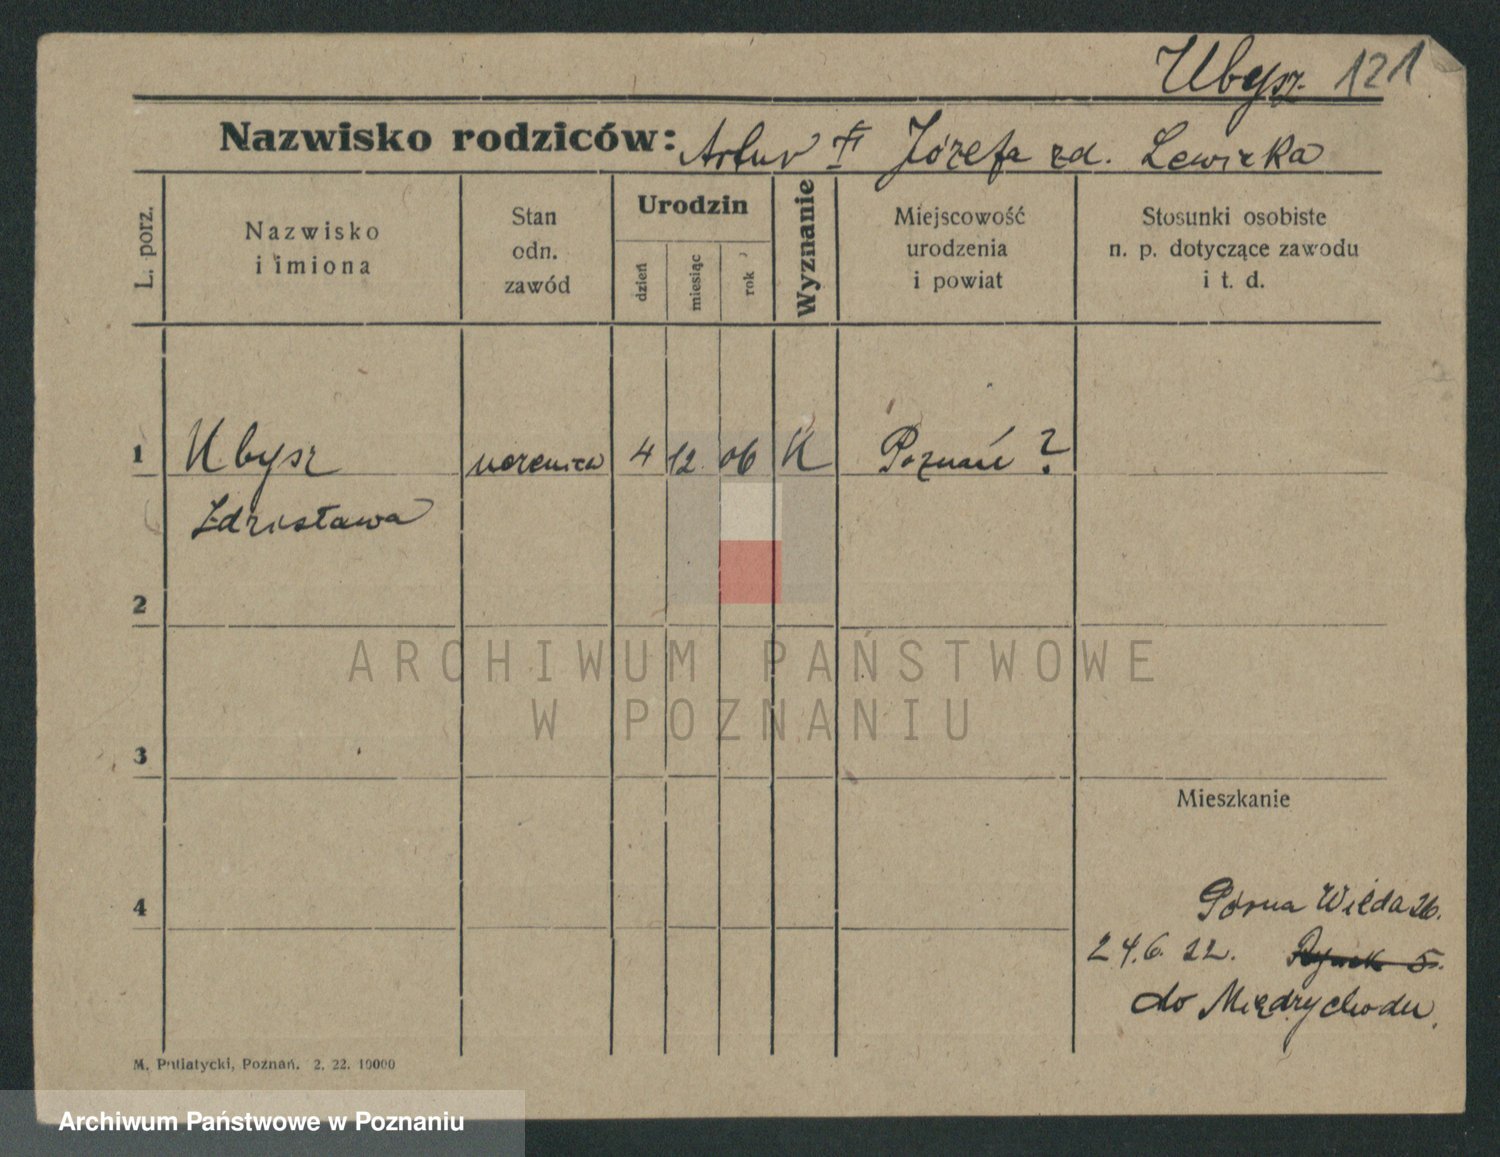 Ubysz 121
Nazwisko rodziców: Artur † Józefa zd. Lewicka
L. porz.
Nazwisko
i imiona
Stan
odn.
zawód
Urodzin
dzień
miesiąc
rok
Wyznanie
Miejscowość
urodzenia
i powiat
Stosunki osobiste
n. p. dotyczące zawodu
i t. d.
1 Ubysz uczenica 4 12. 06 K Poznań ?
Zdzisława
2
ARCHIWUM PAŃSTWOWE
W POZNANIU
3
Mieszkanie
4
Górna Wilda 26.
24.6.22. Rynek 5.
do Międzychodu.
M. Putiatycki, Poznań. 2. 22. 10000
Archiwum Państwowe w Poznaniu